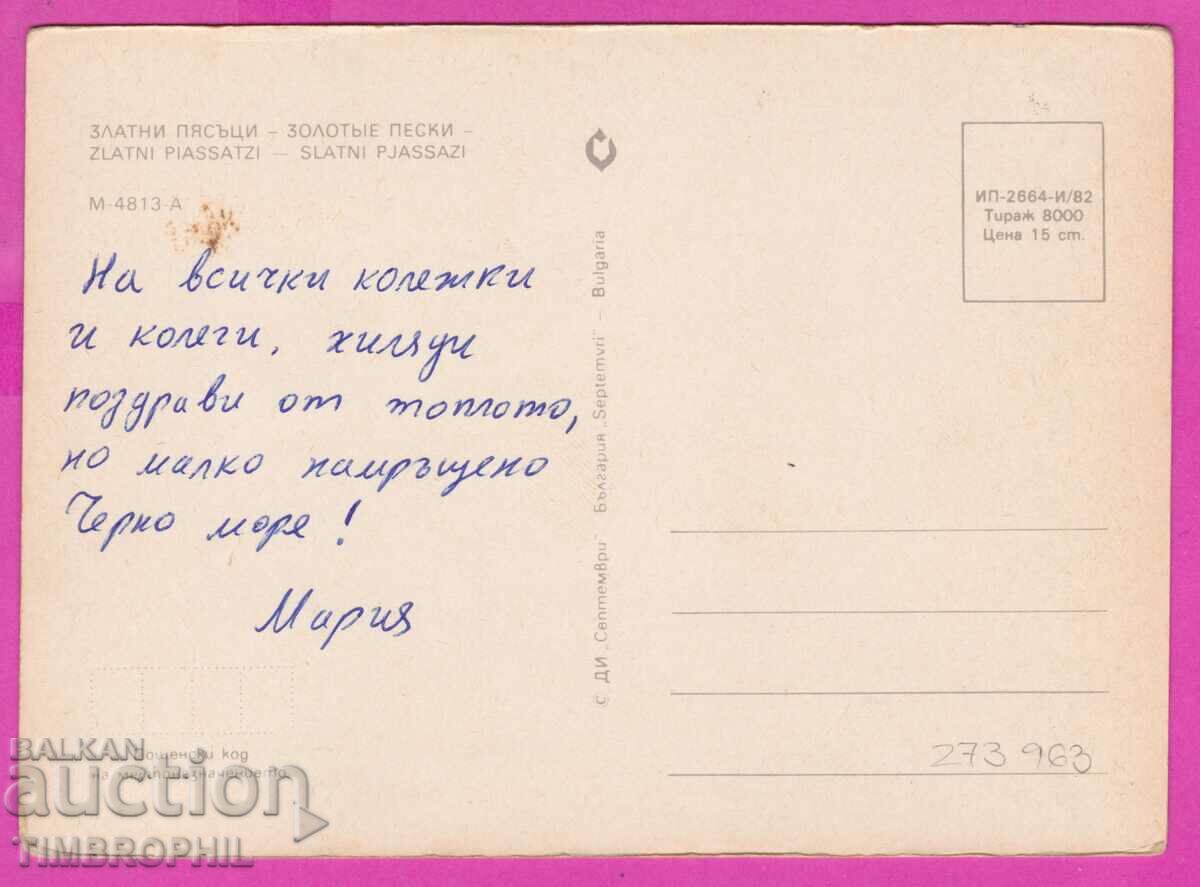 ЗЛАТНИ ПЯСЪЦИ – ЗОЛОТЫЕ ПЕСКИ –
ZLATNI PIASSATZI — SLATNI PJASSAZI
М-4813-А
На всички колежки
и колеги, хиляди
поздрави от топлото,
но малко намръщено
Черно море!
Мария
Пощенски код
на местоназначението
© ДИ „Септември" България „Septemvri" – Bulgaria
ИП-2664-И/82
Тираж 8000
Цена 15 ст.
273 963
BALKAN
auction
TIMBROPHIL